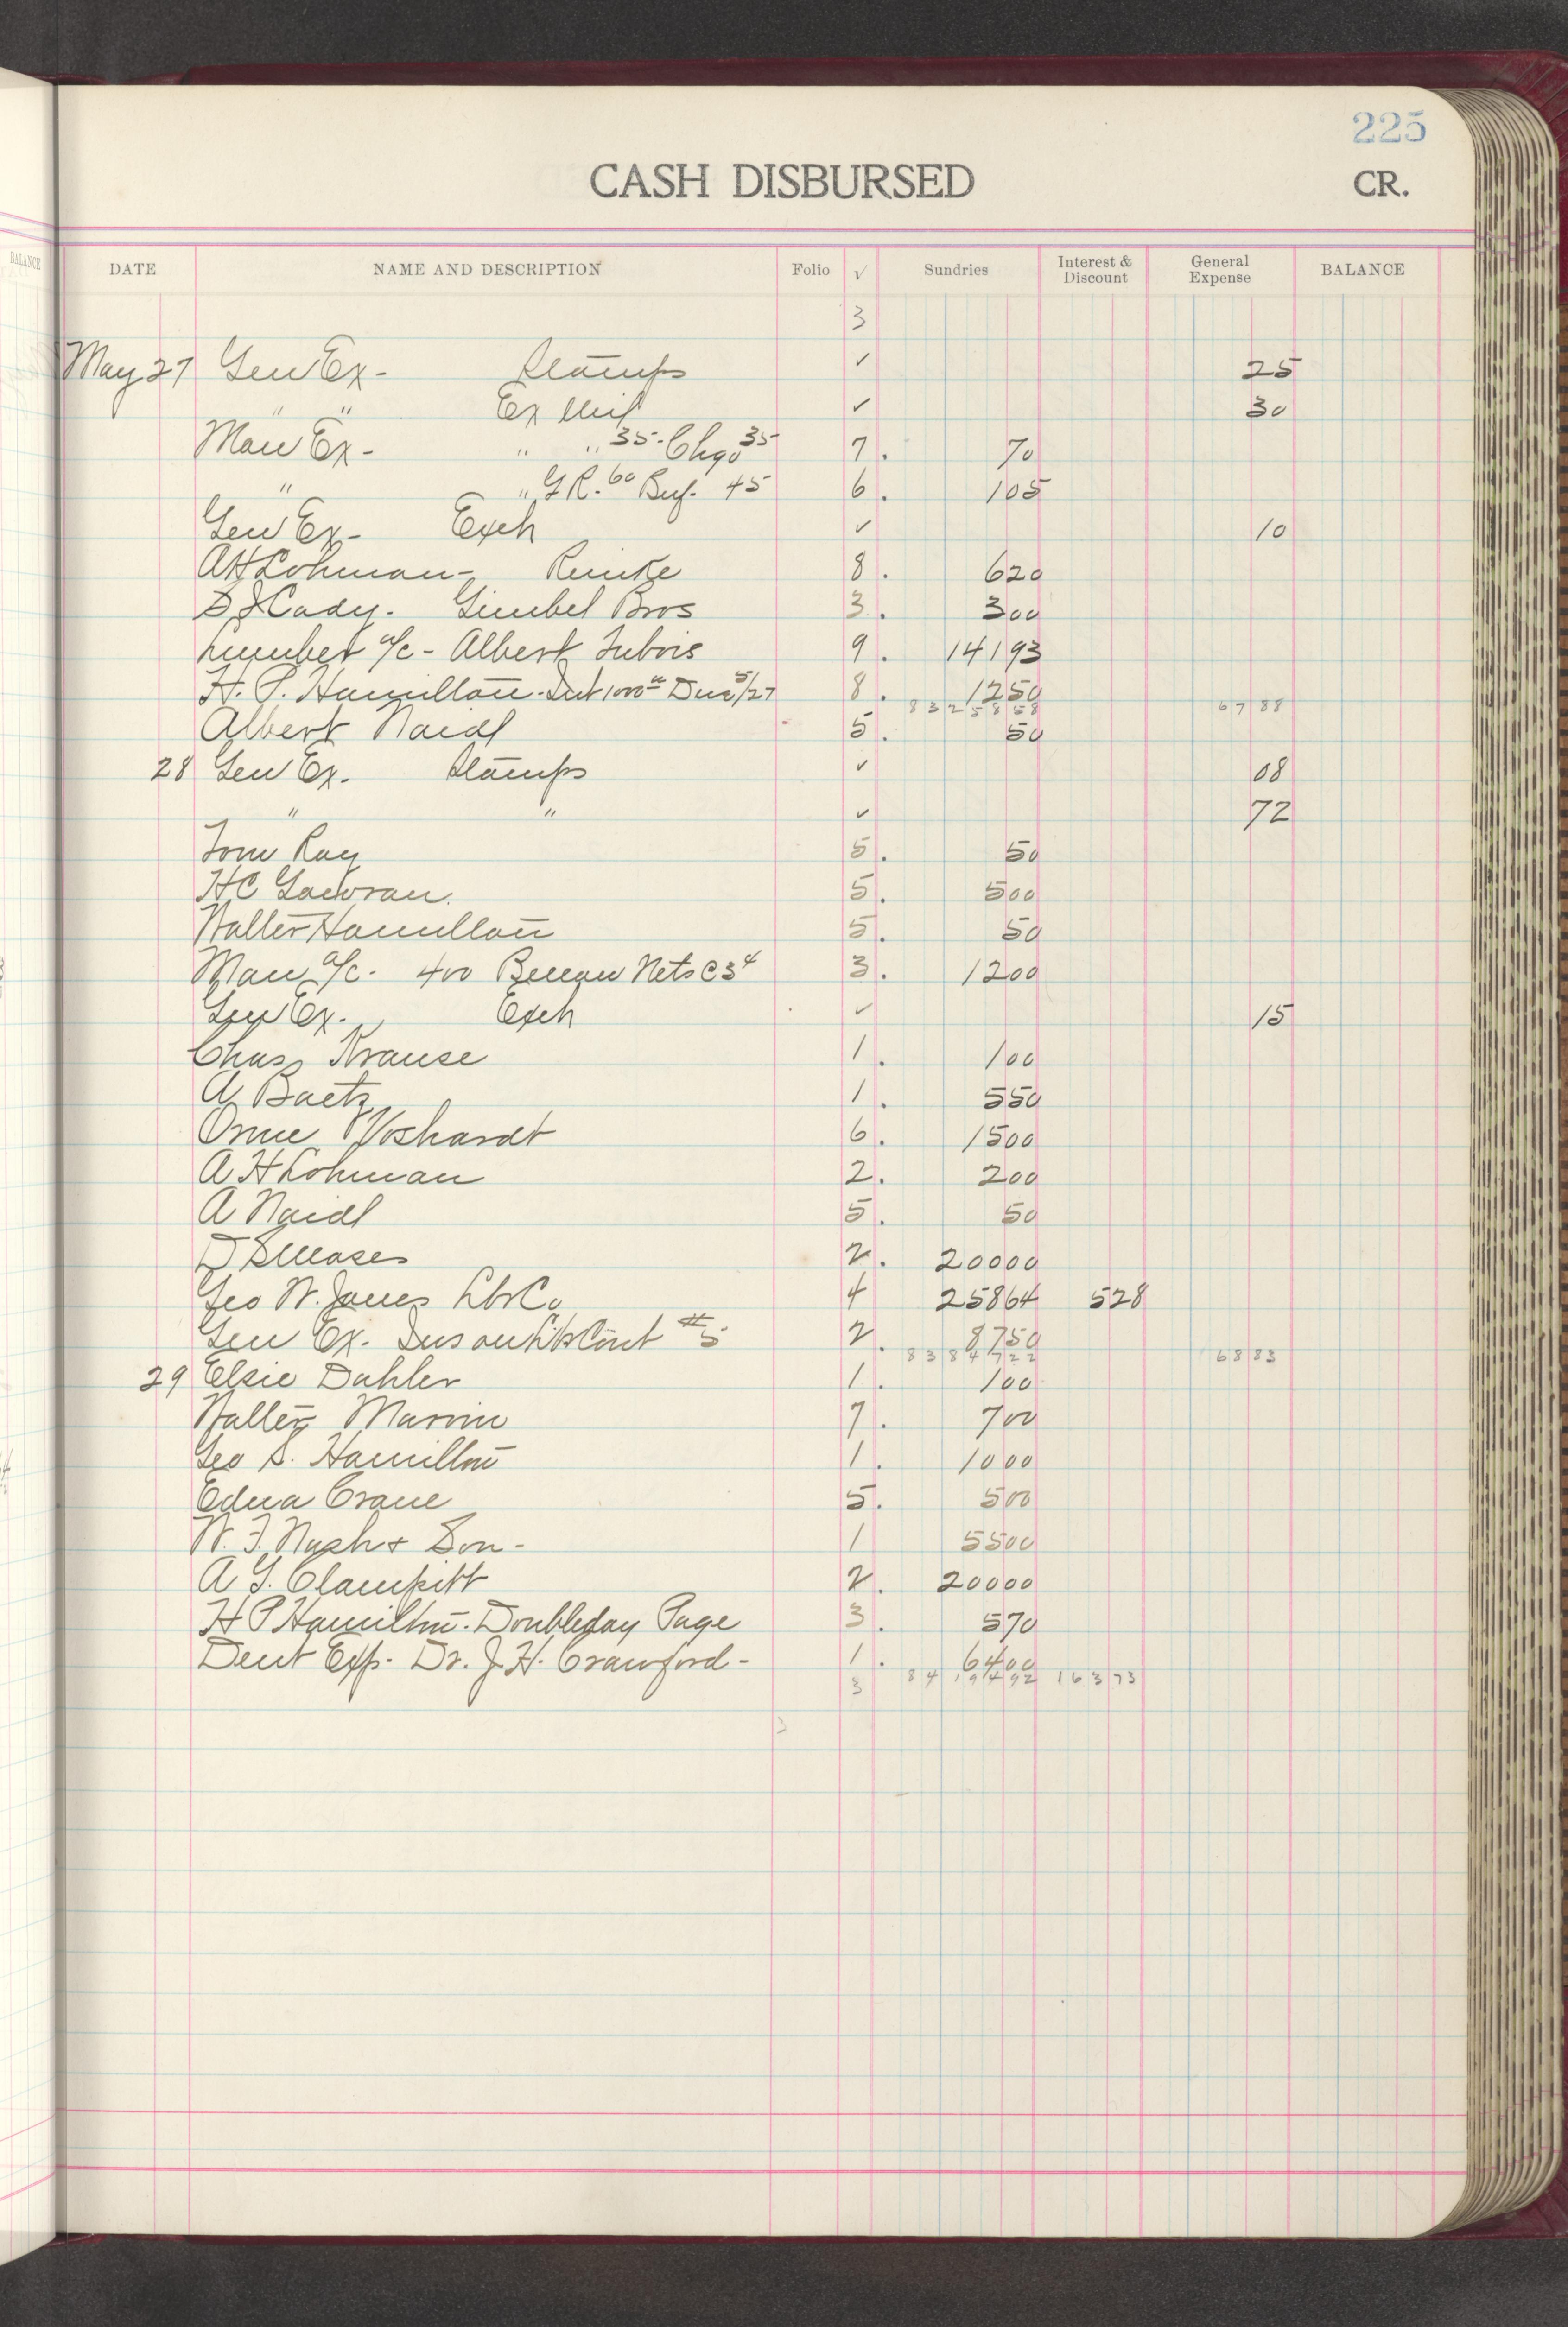 225
CASH DISBURSED CR.
BALANCE
DATE NAME AND DESCRIPTION Folio √ Sundries Interest & Discount General Expense BALANCE
3
May 27 Gen Ex- Stamps ✓ 25
" " Ex Mil ✓ 30
Man Ex- " " 35- Chgo 35 7. 70
" " G R. 60 Buf. 45 6. 105
Gen Ex- Exch ✓ 10
A H Lohman- Reinke 8. 620
Cady. Gimbel Bros 3. 300
Lumber a/c - Albert 9. 14193
H. P. Hamilton. Int 1000 Due 5/27 8. 1250
8325858 6788
Albert Naidl 5. 50
28 Gen Ex. Stamps ✓ 08
" " ✓ 72
Tom Ray 5. 50
H C 5. 500
Walter Hamilton 5. 50
Man a/c. 400 Nets @ 3¢ 3. 1200
Gen Ex. Exch ✓ 15
Chas Krause 1. 100
A Baetz 1. 550
Orme Voshardt 6. 1500
A H Lohman 2. 200
A Naidl 5. 50
2. 20000
Geo W. Jones Lbr Co 4 25864 528
Gen Ex. Ins on Lbr Cont #5 2. 8750
8384722 6883
29 Elsie Dahler 1. 100
Walter Marvin 7. 700
Geo S. Hamilton 1. 1000
Edna Crane 5. 500
W. F. Nash & Son- 1 5500
A G. Clampitt 2. 20000
H P Hamilton. Doubleday Page 3. 570
Dent Exp. Dr. J. H. Crawford- 1. 6400
3 8419492 16373